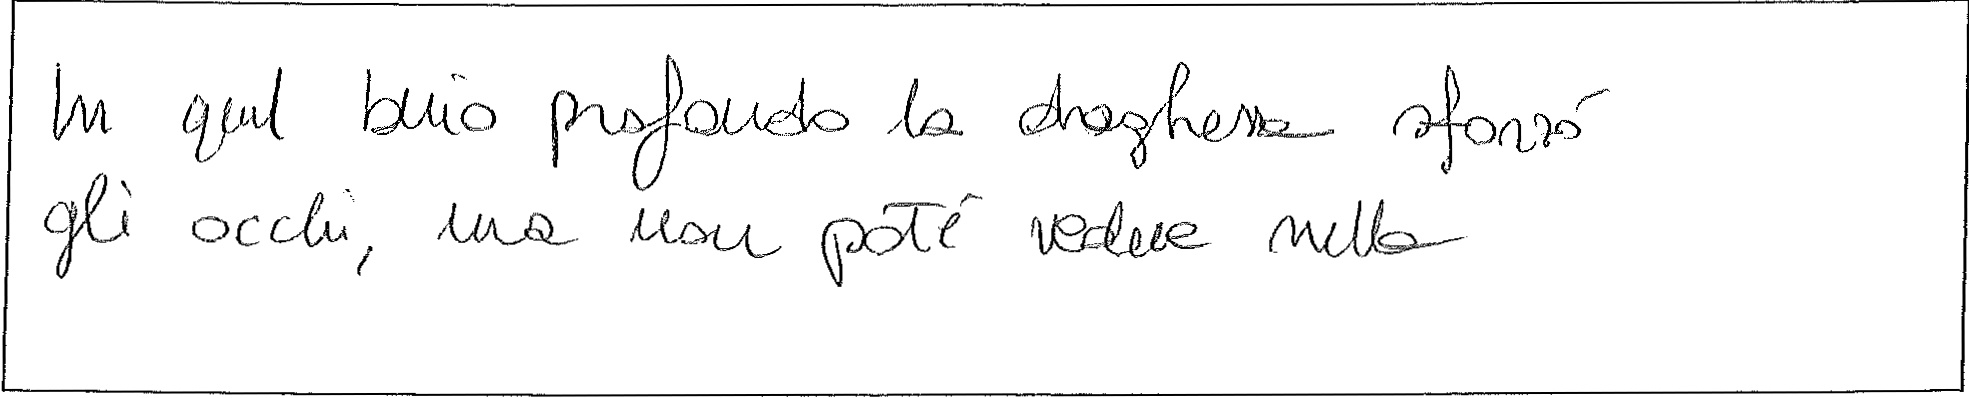 In quel buio profondo la draghessa sforzó
gli occhi, ma non poté vedere nella